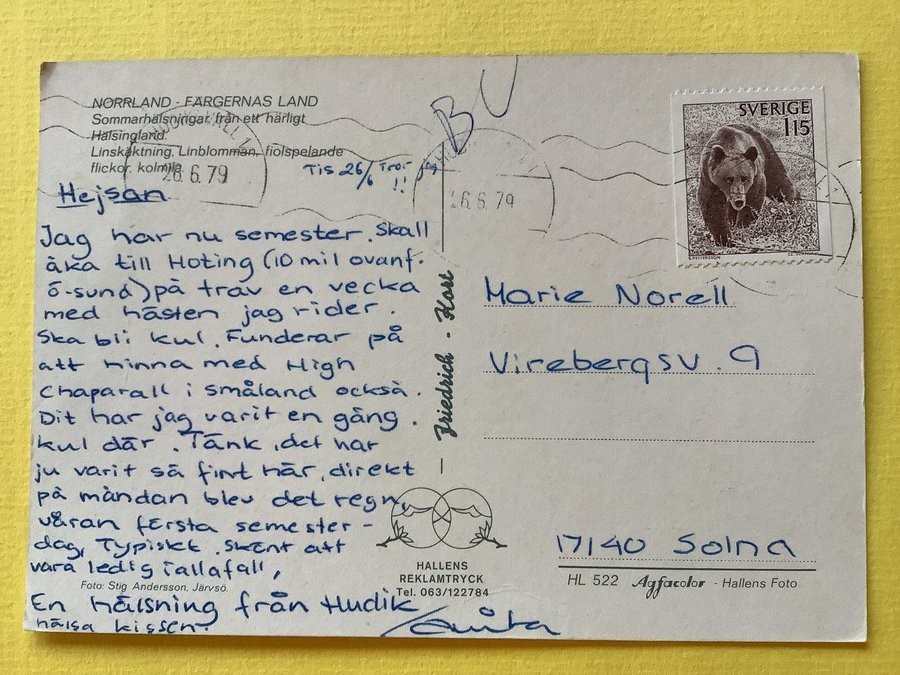 NORRLAND - FÄRGERNAS LAND
Sommarhälsningar från ett härligt
Hälsingland.
Linskäktning, Linblomman, fiolspelande
flickor, kolmila.
Tis 26/6 Tror jag !!
Hejsan
Jag har nu semester. Skall
åka till Hoting (10 mil ovanf.
ö-sund) på trav en vecka
med hästen jag rider.
Ska bli kul. Funderar på
att hinna med High
Chaparall i Småland också.
Dit har jag varit en gång.
Kul där. Tänk, det har
ju varit så fint här, direkt
på måndan blev det regn,
våran första semester-
dag, Typiskt. Skönt att
vara ledig iallafall,
Foto: Stig Andersson, Järvsö.
En hälsning från Hudik
hälsa kissen.
/Anita
26.6.79
BU
26.6.79
SVERIGE
1.15
Friedrich - Kort
Marie Norell
Virebergsv. 9
17140 Solna
HALLENS
REKLAMTRYCK
Tel. 063/122784
HL 522 Agfacolor - Hallens Foto